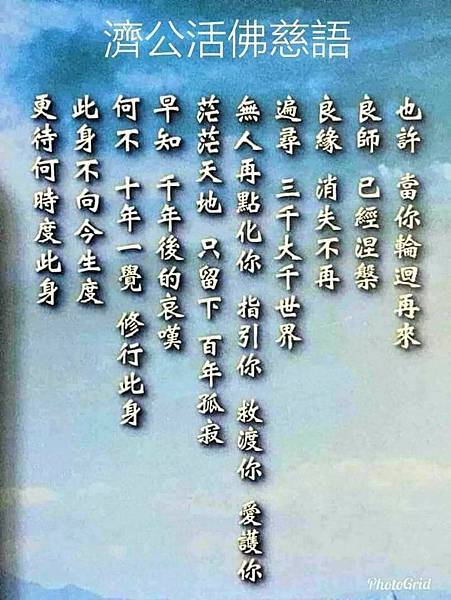 濟公活佛慈語
也許 當你輪迴再來
良師 已經涅槃
良緣 消失不再
遍尋 三千大千世界
無人再點化你 指引你 救渡你 愛護你
茫茫天地 只留下 百年孤寂
早知 千年後的哀嘆
何不 十年一覺 修行此身
此身不向今生度
更待何時度此身
PhotoGrid